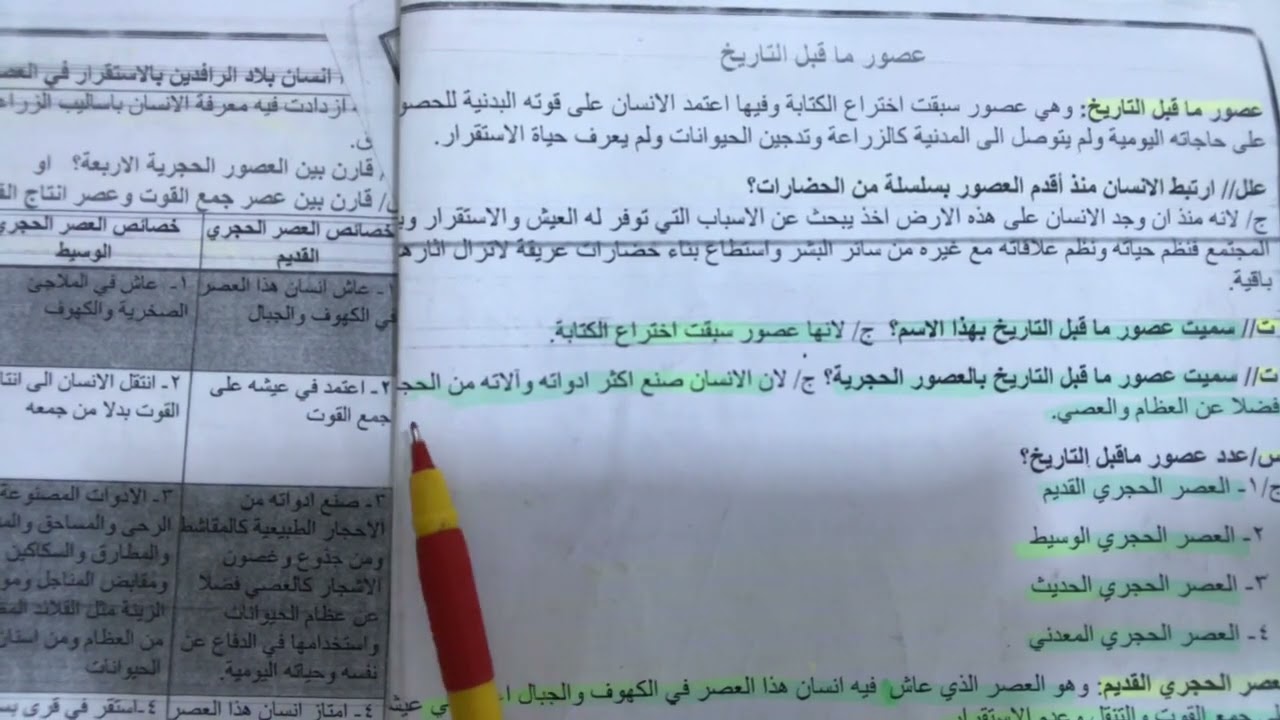 عصور ما قبل التاريخ
عصور ما قبل التاريخ: وهي عصور سبقت اختراع الكتابة وفيها اعتمد الانسان على قوته البدنية للحصو
على حاجاته اليومية ولم يتوصل الى المدنية كالزراعة وتدجين الحيوانات ولم يعرف حياة الاستقرار.
علل// ارتبط الانسان منذ أقدم العصور بسلسلة من الحضارات؟
ج/ لانه منذ ان وجد الانسان على هذه الارض اخذ يبحث عن الاسباب التي توفر له العيش والاستقرار
المجتمع فنظم حياته ونظم علاقاته مع غيره من سائر البشر واستطاع بناء حضارات عريقة لاتزال اثاره
باقية.
ت// سميت عصور ما قبل التاريخ بهذا الاسم؟ ج/ لانها عصور سبقت اختراع الكتابة.
ت// سميت عصور ما قبل التاريخ بالعصور الحجرية؟ ج/ لان الانسان صنع اكثر ادواته وآلاته من الحج
فضلا عن العظام والعصي.
س/عدد عصور ماقبل التاريخ؟
ج/١- العصر الحجري القديم
٢- العصر الحجري الوسيط
٣- العصر الحجري الحديث
٤- العصر الحجري المعدني
عصر الحجري القديم: وهو العصر الذي عاش فيه انسان هذا العصر في الكهوف والجبال
جمع القوت والتنقل وعدم الاستقرار
انسان بلاد الرافدين بالاستقرار في العصر
ازدادت فيه معرفة الانسان باساليب الزراع
ق.
قارن بين العصور الحجرية الاربعة؟ او
/ قارن بين عصر جمع القوت وعصر انتاج الق
خصائص العصر الحجري
القديم
خصائص العصر الحجري
الوسيط
١- عاش انسان هذا العصر
في الكهوف والجبال
١- عاش في الملاجئ
الصخرية والكهوف
٢- اعتمد في عيشه على
جمع القوت
٢- انتقل الانسان الى انتا
القوت بدلا من جمعه
٣- صنع ادواته من
الاحجار الطبيعية كالمقاشط
ومن جذوع وغصون
الاشجار كالعصي فضلا
عن عظام الحيوانات
واستخدامها في الدفاع عن
نفسه وحياته اليومية.
٣- الادوات المصنوعة
الرحى والمساحق
والمطارق والسكاكين
ومقابض المناجل
الزينة مثل القلائد
من العظام ومن اسنان
الحيوانات
٤- امتاز انسان هذا العصر
٤- استقر في قرى